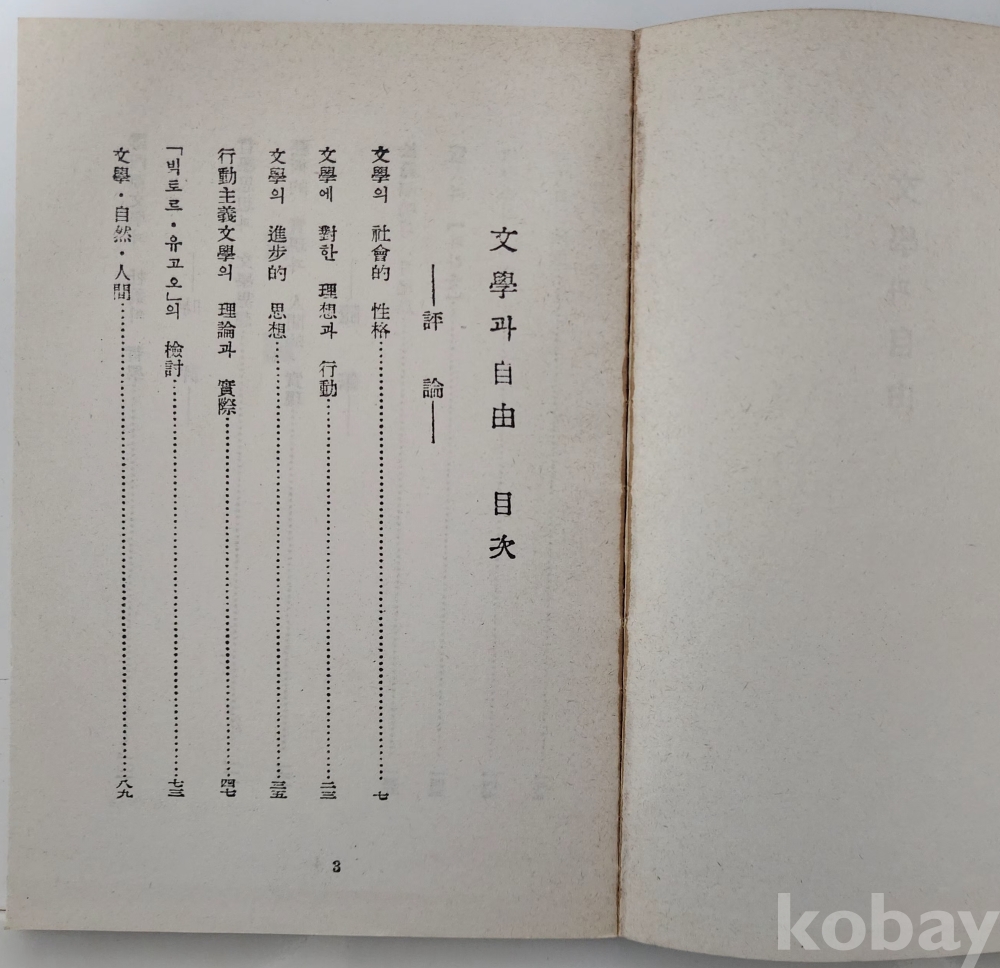 文學과自由 目次
―評 論―
文學의 社會的 性格……七
文學에 對한 理想과 行動……二三
文學의 進步的 思想……三五
行動主義文學의 理論과 實際……四七
「빅토르·유고오」의 檢討……七三
文學·自然·人間……八九
3
kobay